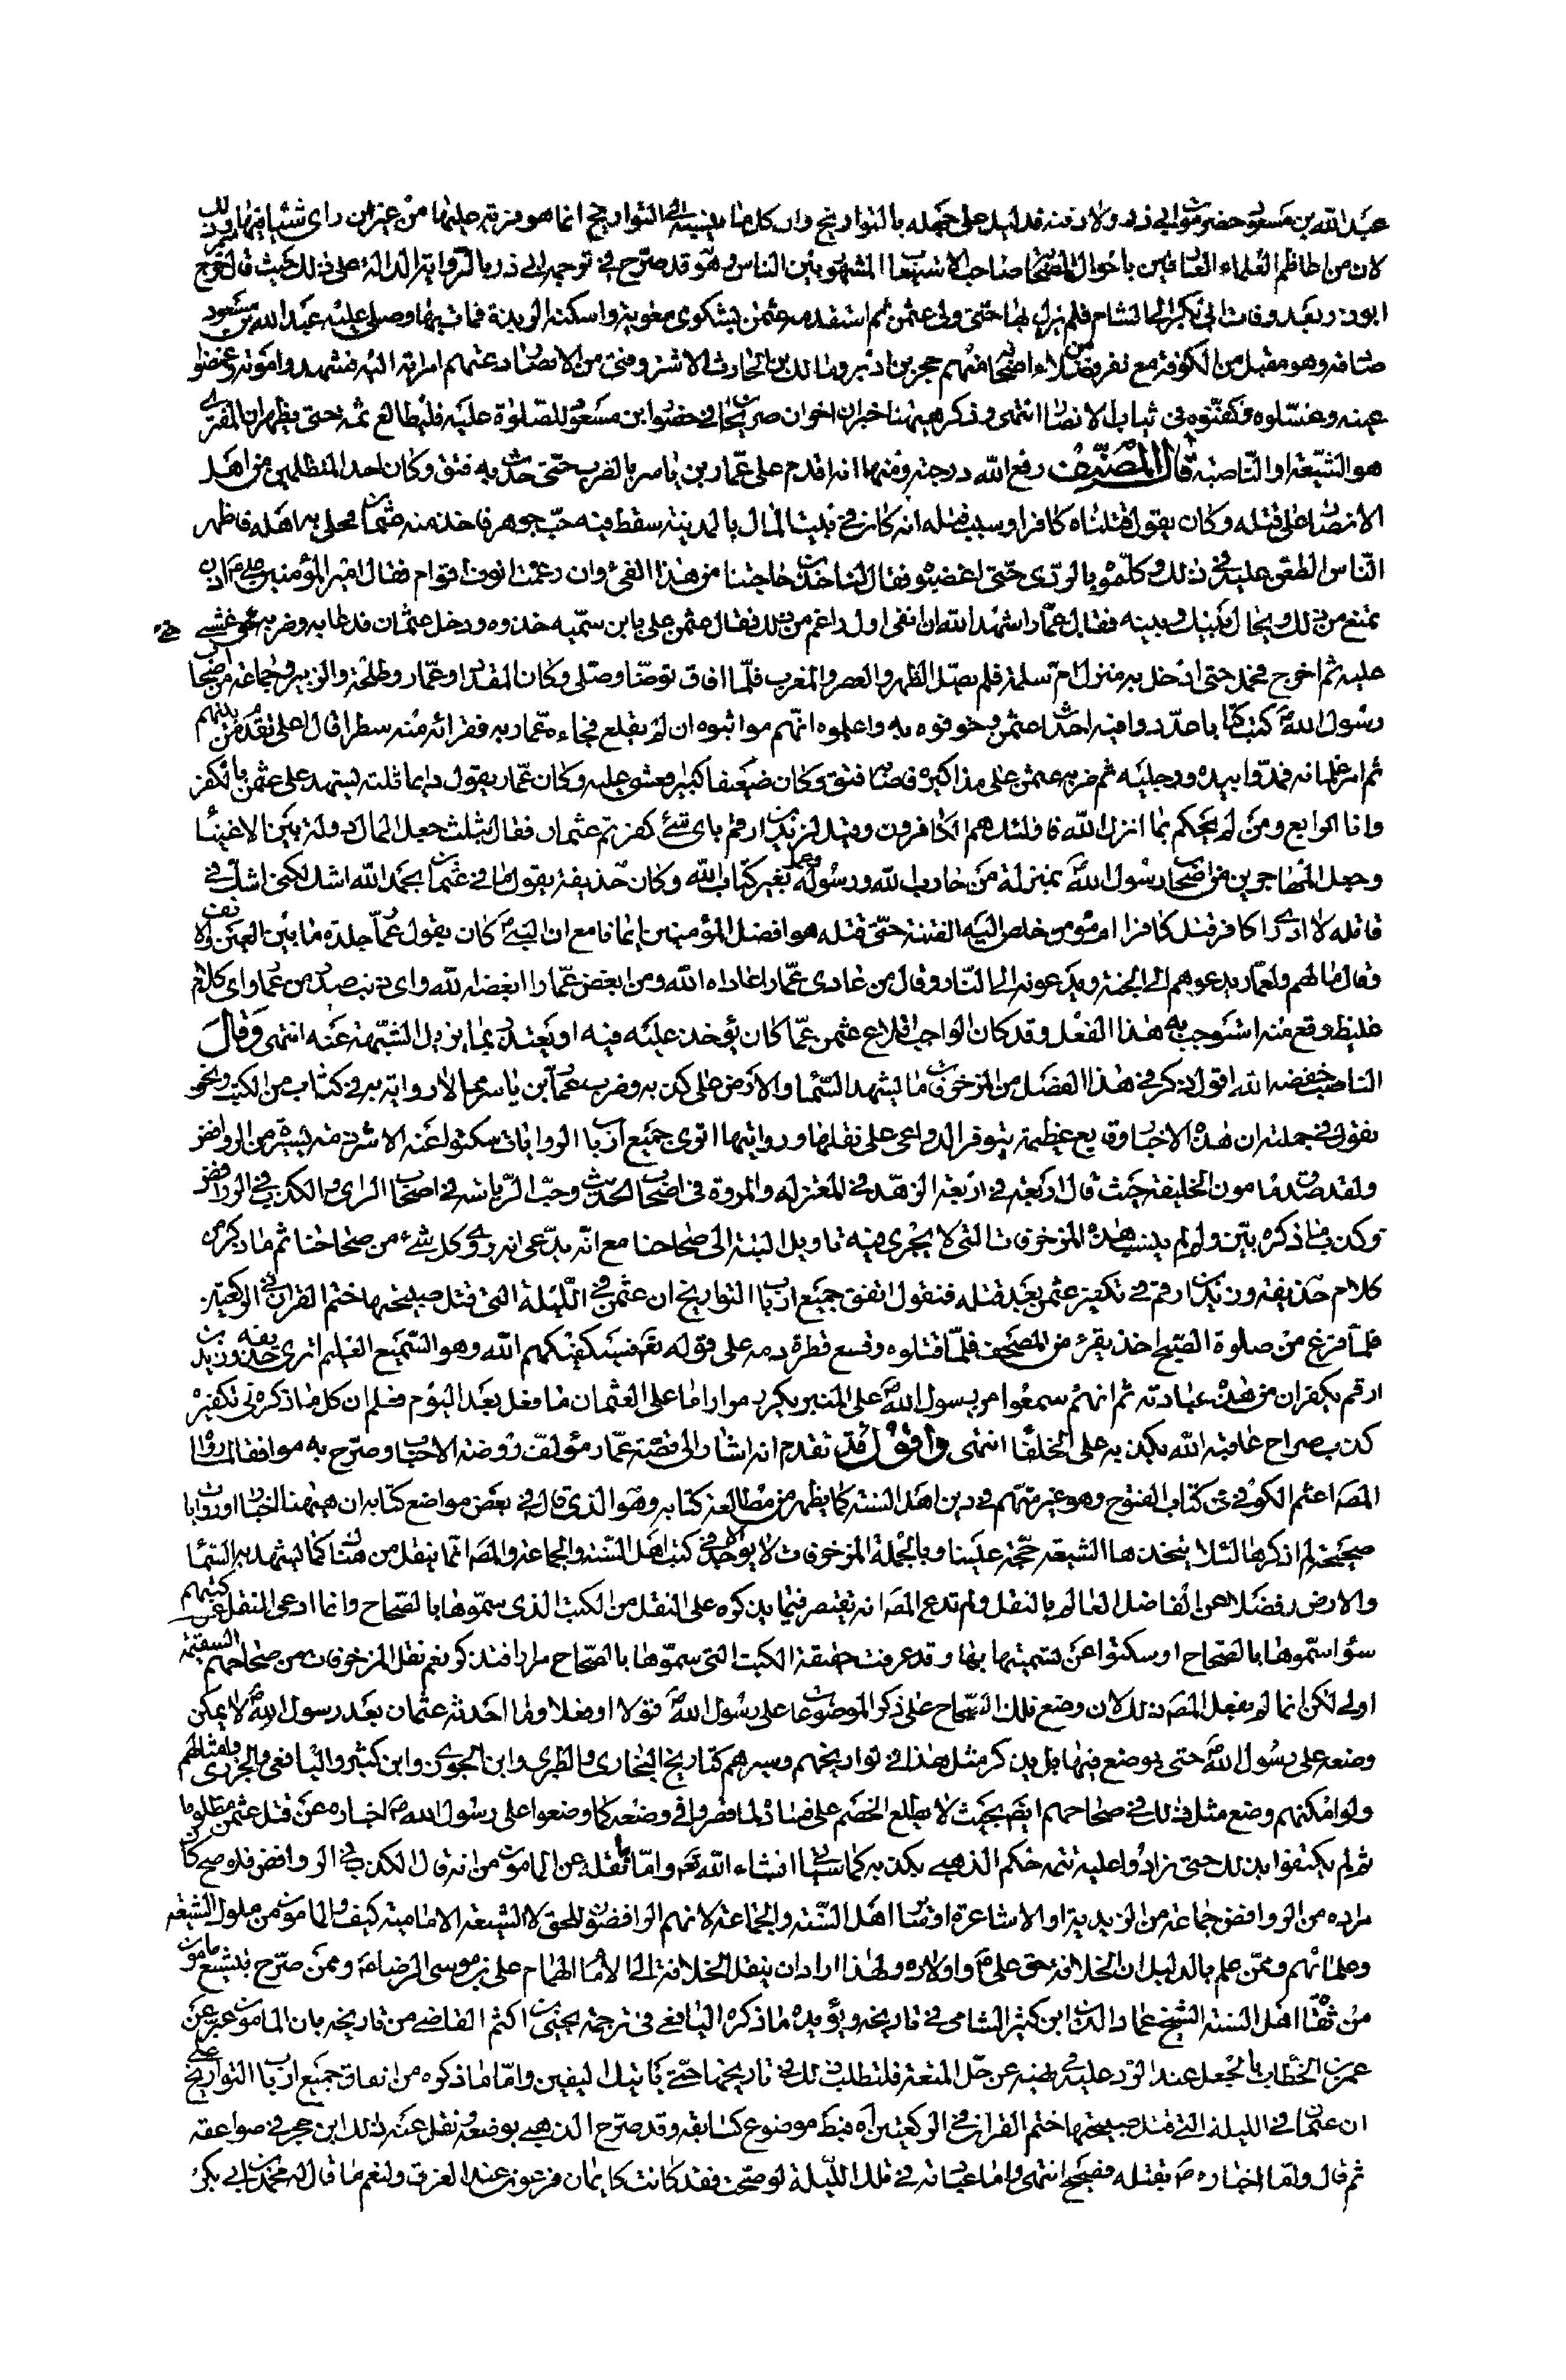 عبد الله بن مسعود حضر موت ابي ذر ولا دفنه فدليل على جهله بالتواريخ وان كل ما ينسبه الى التواريخ انما هو فرية عليها من غير ان راى شيئا فيها وذلك
لان من اعاظم العلماء العارفين باحوال الصحابة صاحب الاستيعاب المشهور بين الناس وهو قد صرح في ترجمة ابي ذر بالرواية الدالة على ذلك حيث قال خرج
ابو ذر بعد وفات ابي بكر الى الشام فلم يزل بها حتى ولى عثمن ثم استقدمه عثمن لشكوى معوية واسكنه الربذة فمات بها وصلى عليه عبد الله بن مسعود
صادفه وهو مقبل من الكوفة مع نفر فضلاء من اصحابه منهم حجر بن ادبر ومالك بن الحارث الاشتر وفتى من الانصار دعتهم امراته اليه فشهدوا موته وغمضوا
عينه وغسلوه وكفنوه في ثياب الانصار انتهى وذكر هيهنا خبران اخوان صريحان في حضور ابن مسعود للصلوة عليه فليطالع ثمه حتى يظهر ان المفترى
هو الشيعة او الناصبة قال المصنف رفع الله درجته ومنها انه اقدم على عمار بن ياسر بالضرب حتى حدث به فتق وكان احد المتظلمين من اهل
الامصار على قتله وكان يقول قتلناه كافرا وسبب قتله انه كان في بيت المال بالمدينة سقط فيه حب جوهر فاخذ منه عثمان فحلى به اهله فاظهر
الناس الطعن عليه في ذلك وكلموه بالردى حتى اغضبوه فقال لناخذن حاجتنا من هذا الفئ وان رغمت انوف اقوام فقال امير المؤمنين ع اذن
تمنع من ذلك ويحال بينك وبينه فقال عمار اشهد الله ان انفى اول راغم من ذلك فقال عثمن على يا بن سميه خذوه ودخل عثمان فدعا به وضربه حتى غشى
عليه ثم اخرج فحمل حتى ادخل به منزل ام سلمة فلم يصل الظهر والعصر والمغرب فلما افاق توضا وصلى وكان المقداد وعمار وطلحة والزبير وجماعة من اصحاب
رسول الله ص كتبوا كتابا عددوا فيه احداث عثمن وخوفوه به واعلموه انهم مواثبوه ان لم يقلع فجاءه عمار به فقرا منه سطرا فقال اعلى تقدم من بينهم
ثم امر غلمانه فمدوا بيديه ورجليه ثم ضربه عثمن على مذاكيره فاصابه فتق وكان ضعيفا كبيرا فغشى عليه وكان عمار يقول دايما ثلثة يشهدون على عثمن بالكفر
وانا الرابع ومن لم يحكم بما انزل الله فاولئك هم الكافرون وقيل لزيد بن ارقم باى شئ كفرتم عثمان فقال بثلث جعل المال دولة بين الاغنياء
وجعل المهاجرين من اصحاب رسول الله ص بمنزلة من حارب الله ورسوله وعمل بغير كتاب الله وكان حذيفة يقول ما في عثمان بحمد الله اشك لكنى اشك في
قاتله لا ادرى اكافر قتل كافرا ام مؤمن خلص اليه الفتنة حتى قتله هو افضل المؤمنين ايمانا مع ان النبى ص كان يقول عمار جلدة ما بين العين والانف
وقال ما لهم ولعمار يدعوهم الى الجنة ويدعونه الى النار وقال من عادى عمارا عاداه الله ومن ابغض عمارا ابغضه الله واى ذنب صدر من عمار واى كلام
غليظ وقع منه استوجب به هذا الفعل وقد كان الواجب اقلاع عثمن عما كان يؤخذ عليه فيه او يعتذر بما يزيل الشبهة عنه انتهى وقال
الناصب خفضه الله اقول ذكر في هذا الفصل من المزخرفات ما يشهد السماء والارض على كذبه وضرب عمار بن ياسر مما لا رواية به في كتاب من الكتب ونحن
نقول في جملته ان هذه الاخبار وقايع عظيمة يتوفر الدواعى على نقلها وروايتها اترى جميع ارباب الروايات سكتوا عنه الا شرذمة يسيرة من الروافض
ولقد صدق مامون الخليفة حيث قال اربعة في اربعة الزهد في المعتزلة والمروة في اصحاب الحديث وحب الرياسة في اصحاب الراى والكذب في الروافض
وكذب ما ذكره بين ولو لم ينسب هذه المزخرفات التى لا يجرى فيه تاويل البتة الى صحاحنا مع انه يدعى انه روى كل شئ من صحاحنا ثم ما ذكره من
كلام حذيفة وزيد بن ارقم في تكفير عثمن بعد قتله فنقول اتفق جميع ارباب التواريخ ان عثمن في الليلة التى قتل صبيحتها ختم القران في الركعتين
فلما فرغ من صلوة الصبح اخذ يقرء من المصحف فلما قتلوه وقع قطرة دمه على قوله تع فسيكفيكهم الله وهو السميع العليم اترى حذيفة وزيد بن
ارقم يكفران من هذه عبادته ثم انهم سمعوا من رسول الله ص على المنبر يكرر مرارا ما على العثمان ما فعل بعد اليوم فعلم ان كل ما ذكره في تكفيره
كذب صراح عاقبه الله بكذبه على الخلفا انتهى واقول قد تقدم انه اشار الى قصة عمار مؤلف روضة الاحباب وصرح به موافقا لما رواه
المصه اعثم الكوفى في كتاب الفتوح وهو غير متهم في دين اهل السنة كما يظهر من مطالعة كتابه وهو الذى قال في بعض مواضع كتابه ان هيهنا اخبارا وروايات
صحيحة لم اذكرها لئلا يتخذها الشيعة حجة علينا وبالجملة المزخرفات لا يوجد الا في كتب اهل السنة والجماعة والمصه انما ينقل من هناك كما يشهد به السماء
والارض فضلا عن الفاضل العالم بالنقل ولم تدع المصه انه يقتصر فيما يذكره على النقل من الكتب الذى سموها بالصحاح وانما ادعى النقل عن كتبهم
سواء سموها بالصحاح او سكتوا عن تسميتها بها وقد عرفت حقيقة الكتب التى سموها بالصحاح مرارا فتذكر نعم نقل المزخرفات من صحاحهم السقيمة
اولى لكن انما لم يفعل المصه ذلك لان وضع تلك الصحاح على ذكر الموضوعات على رسول الله ص قولا او فعلا وما احدثه عثمان بعد رسول الله ص لا يمكن
وضعه على رسول الله ص حتى يوضع فيها بل يذكر مثل هذا في تواريخهم وسيرهم كتاريخ البخارى والطبرى وابن الجوزى وابن كثير واليافعى والجزرى وامثالهم
ولو امكنهم وضع مثل ذلك في صحاحهم ايضا بحيث لا يطلع الخصم على فساده لما قصروا في وضعه كما وضعوا على رسول الله ص اخباره عن قتل عثمن مظلوما
ثم لم يكتفوا بذلك حتى زادوا عليه تتمه حكم الذهبى بكذبه كما سياتى انشاء الله تع واما ما نقله عن المامون من انه قال الكذب في الروافض فلو صح كان
مراده من الروافض جماعة من الزيدية او الاشاعرة اوساير اهل السنة والجماعة لانهم الرافضون للحق لا الشيعة الامامية كيف والمامون من ملوك الشيعة
وعلمائهم وممن علم بالدليل ان الخلافة حق على ع واولاده ولهذا اراد ان ينقل الخلافة الى الامام الهمام على بن موسى الرضا ع وممن صرح بتشيع مامون
من ثقات اهل السنة الشيخ عماد الدين ابن كثير الشامى في تاريخه ويؤيده ما ذكره اليافعى في ترجمة يحيى بن اكثم القاضى من تاريخه بان المامون عبر عن
عمر بن الخطاب بالجعل عند الرد عليه في نهيه عن حل المتعة فلتطلب ذلك في تاريخهما حتى ياتيك اليقين واما ما ذكره من اتفاق جميع ارباب التواريخ على
ان عثمان في الليلة التى قتل صبيحتها ختم القران في الركعتين اه فبط موضوع كسابقه وقد صرح الذهبى بوضعه ونقل عنه ذلك ابن حجر في صواعقه
ثم قال واما اخباره ص بقتله فصحيح انتهى واما عبادته في تلك الليلة لو صحت فقد كانت كايمان فرعون عند الغرق ولنعم ما قال له محمد بن ابى بكر